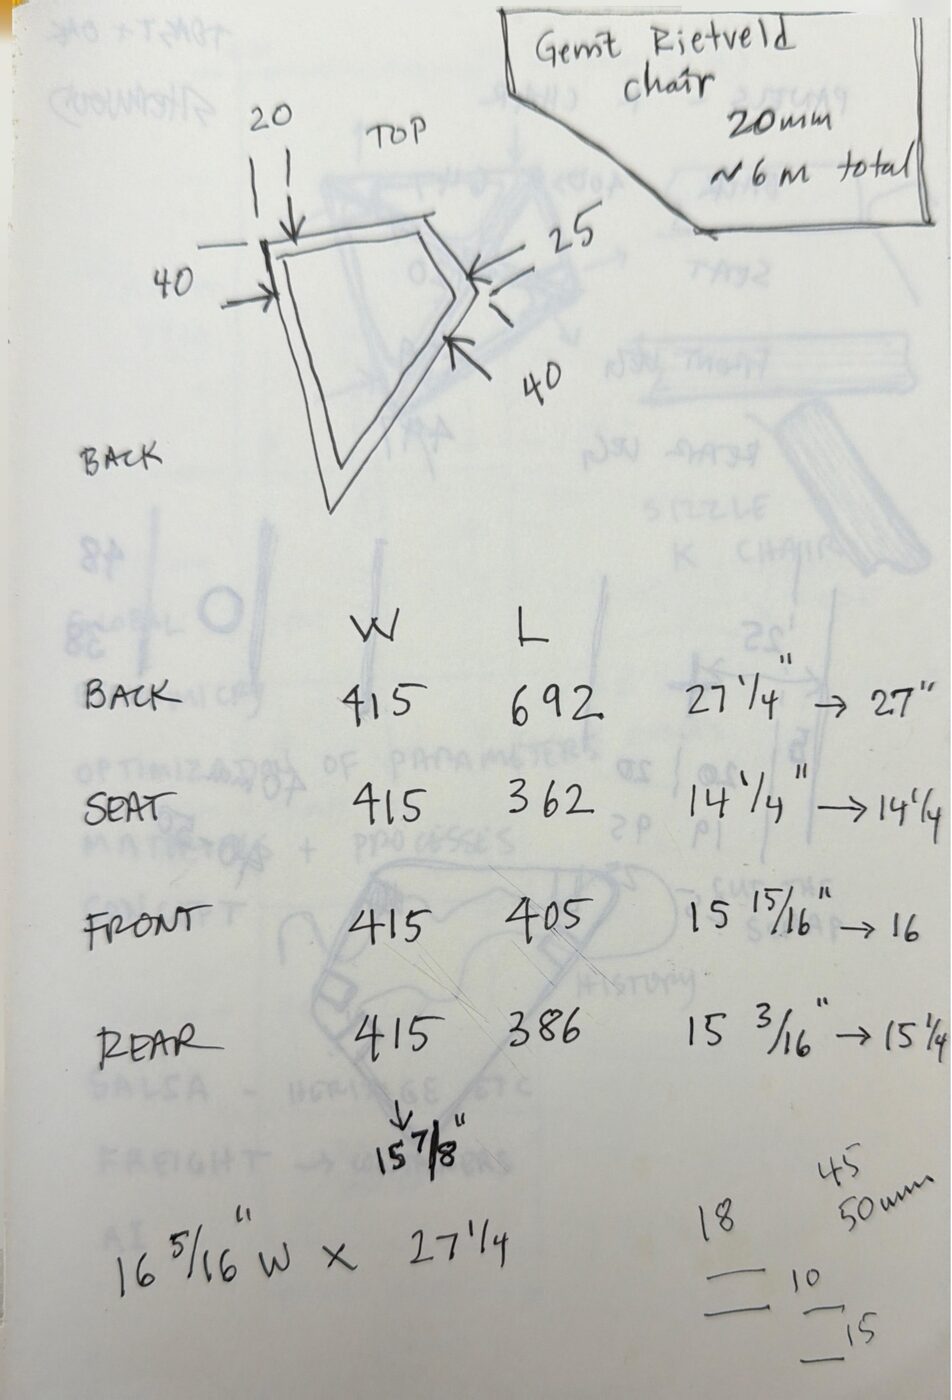 Gerrit Rietveld
chair
20mm
~6 m total
20
TOP
25
40
40
BACK
W L
BACK 415 692 27 1/4" → 27"
SEAT 415 362 14 1/4" → 14 1/4
FRONT 415 405 15 15/16" → 16
REAR 415 386 15 3/16" → 15 1/4
↓
15 7/8"
16 5/16" W x 27 1/4
45
18 50mm
10
15